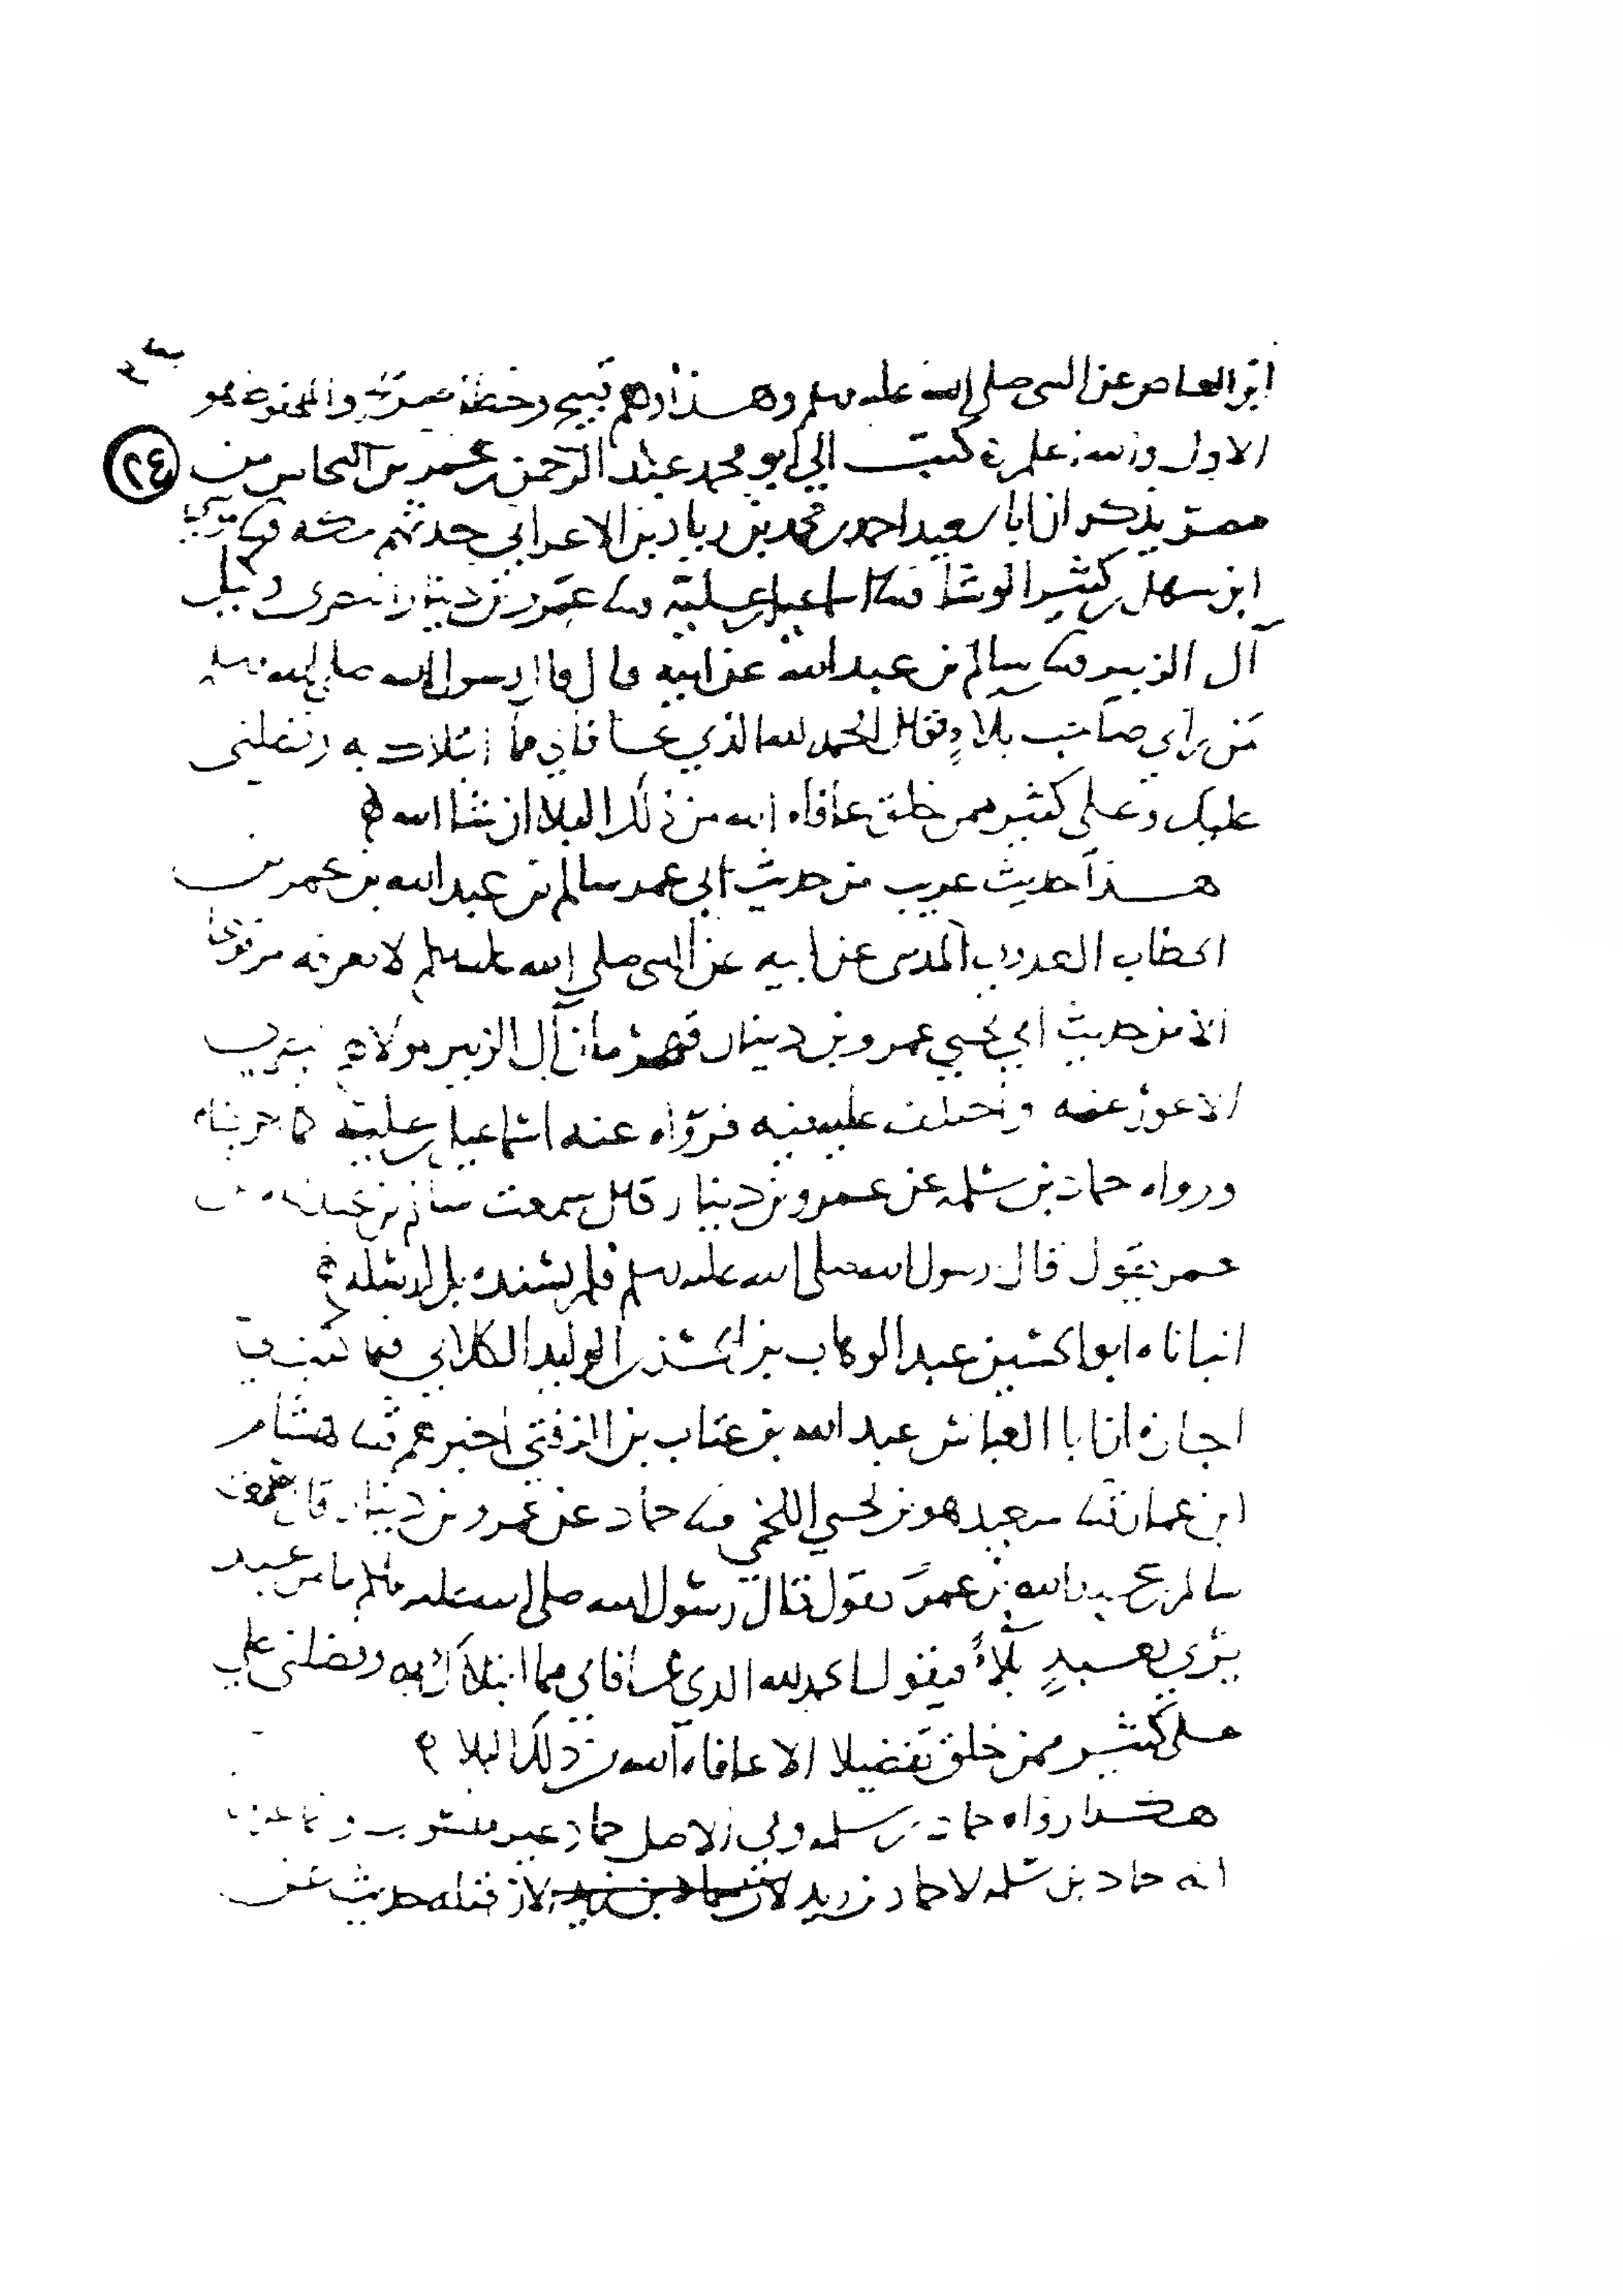 ابن العاص عن النبي صلى الله عليه وسلم وهذا وهم قبيح وخطأ والمحفوظ هو
٢٤
الاول والله اعلم كتب الي ابو محمد عبد الرحمن بن عمر بن النحاس من
مصر يذكر ان ابا سعيد احمد بن محمد بن زياد بن الاعرابي حدثهم بمكة
ابن سهل بن كثير الوشا ثنا اسماعيل بن علية ثنا عمرو بن دينار البصري وكيل
آل الزبير ثنا سالم بن عبد الله عن ابيه قال قال رسول الله صلى الله عليه وسلم
من راى صاحب بلاء فقال الحمد لله الذي عافاني مما ابتلاك به وفضلني
عليك وعلى كثير ممن خلق عافاه الله من ذلك البلا ان شا الله
هذا حديث غريب من حديث ابي عمر سالم بن عبد الله بن عمر بن
الخطاب العدوي المدني عن ابيه عن النبي صلى الله عليه وسلم لا نعرفه مرفوعا
الا من حديث ابي يحيى عمرو بن دينار قهرمان آل الزبير مولاهم
الاعور عنه واختلف عليه فيه فرواه عنه اسماعيل بن علية كما اخرجناه
ورواه حماد بن سلمة عن عمرو بن دينار قال سمعت سالم بن عبد الله بن
عمر يقول قال رسول الله صلى الله عليه وسلم فلم يسنده بل ارسله
انباناه ابو الحسين عبد الوهاب بن الحسن بن الوليد الكلابي فيما كتب
اجازة ان ابا العباس عبد الله بن عتاب بن الزفتي اخبرهم ثنا هشام
ابن عمار ثنا سعيد هو بن يحيى اللخمي ثنا حماد عن عمرو بن دينار قال سمعت
سالم بن عبد الله بن عمر يقول قال رسول الله صلى الله عليه وسلم ما من عبد
يرى بعبد بلاء فيقول الحمد لله الذي عافاني مما ابتلاك به وفضلني عليك
وعلى كثير ممن خلق تفضيلا الا عافاه الله من ذلك البلا
هكذا رواه حماد بن سلمة وفي الاصل حماد غير منسوب وانما
انه حماد بن سلمة لا حماد بن زيد لان قبله حديث عن